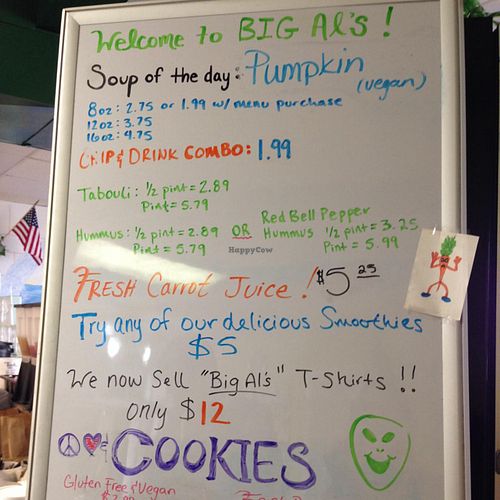 Welcome to BIG Al's !
Soup of the day: Pumpkin
(vegan)
8oz: 2.75 or 1.99 w/ menu purchase
12oz: 3.75
16oz: 4.75
CHIP & DRINK COMBO: 1.99
Tabouli: 1/2 pint = 2.89
Pint = 5.79
Hummus: 1/2 pint = 2.89 OR Red Bell Pepper Hummus 1/2 pint = 3.25
Pint = 5.79 Pint = 5.99
HappyCow
FRESH Carrot Juice! $5 25
Try any of our delicious Smoothies
$5
We now Sell "Big Al's" T-Shirts !!
only $12
& COOKIES
Gluten Free & Vegan